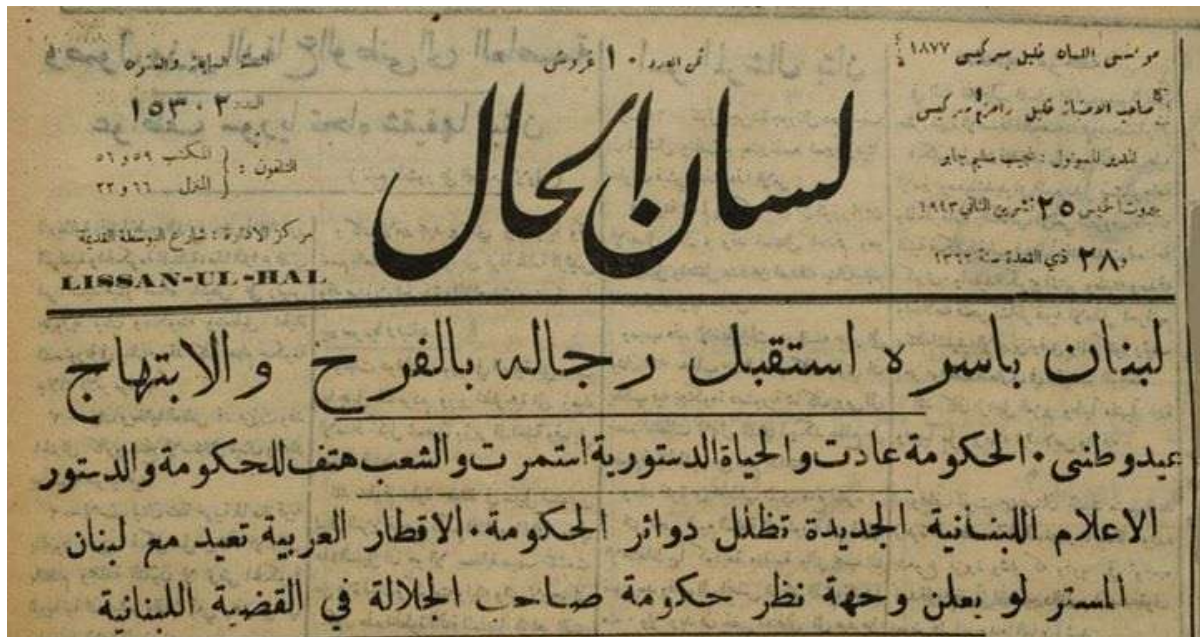 مؤسس اللسان خليل سركيس ١٨٧٧
صاحب الامتياز خليل رامز سركيس
المدير المسؤول : نجيب سليم جابر
بيروت الخميس ٢٥ تشرين الثاني ١٩٤٣
و ٢٨ ذي القعدة سنة ١٣٦٢
ثمن العدد ١٠ غروش
لسان الحال
السنة السابعة والستون
العدد ١٥٣٠٢
التلفون : المكتب ٥٩ و ٥٦
المنزل ٦٦ و ٢٢
مركز الادارة : شارع البوسطة القديمة
LISSAN-UL-HAL
لبنان باسره استقبل رجاله بالفرح والابتهاج
عيد وطني ٠ الحكومة عادت والحياة الدستورية استمرت والشعب هتف للحكومة والدستور
الاعلام اللبنانية الجديدة تظلل دوائر الحكومة ٠ الاقطار العربية تعيد مع لبنان
المستر لو يعلن وجهة نظر حكومة صاحب الجلالة في القضية اللبنانية